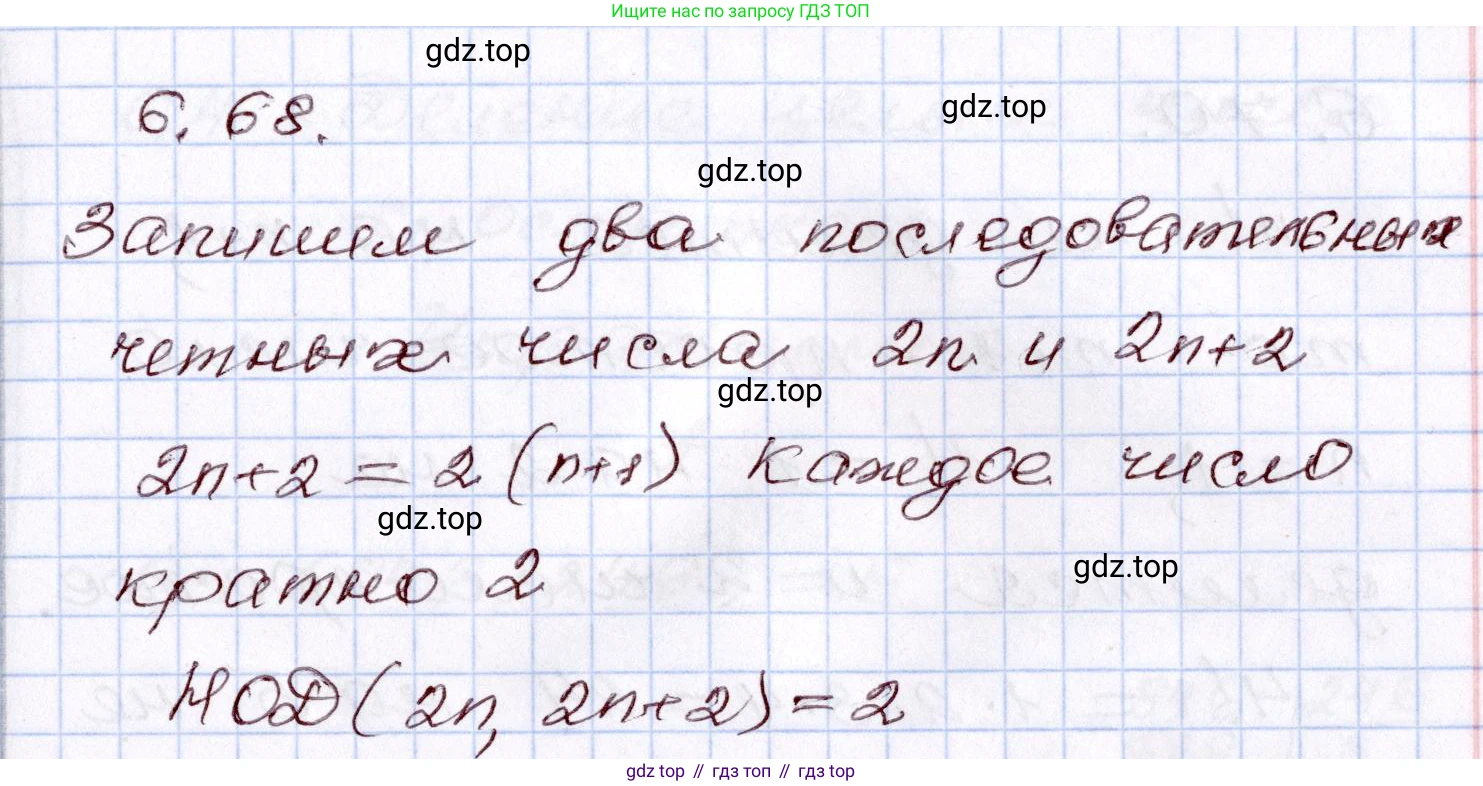 Ищите нас по запросу ГДЗ ТОП
gdz.top
6.68.
gdz.top
gdz.top
Запишем два последовательных
четных числа 2n и 2n+2
gdz.top
2n+2 = 2 (n+1) каждое число
gdz.top
кратно 2
gdz.top
НОД (2n, 2n+2) = 2
gdz top // гдз топ // гдз top